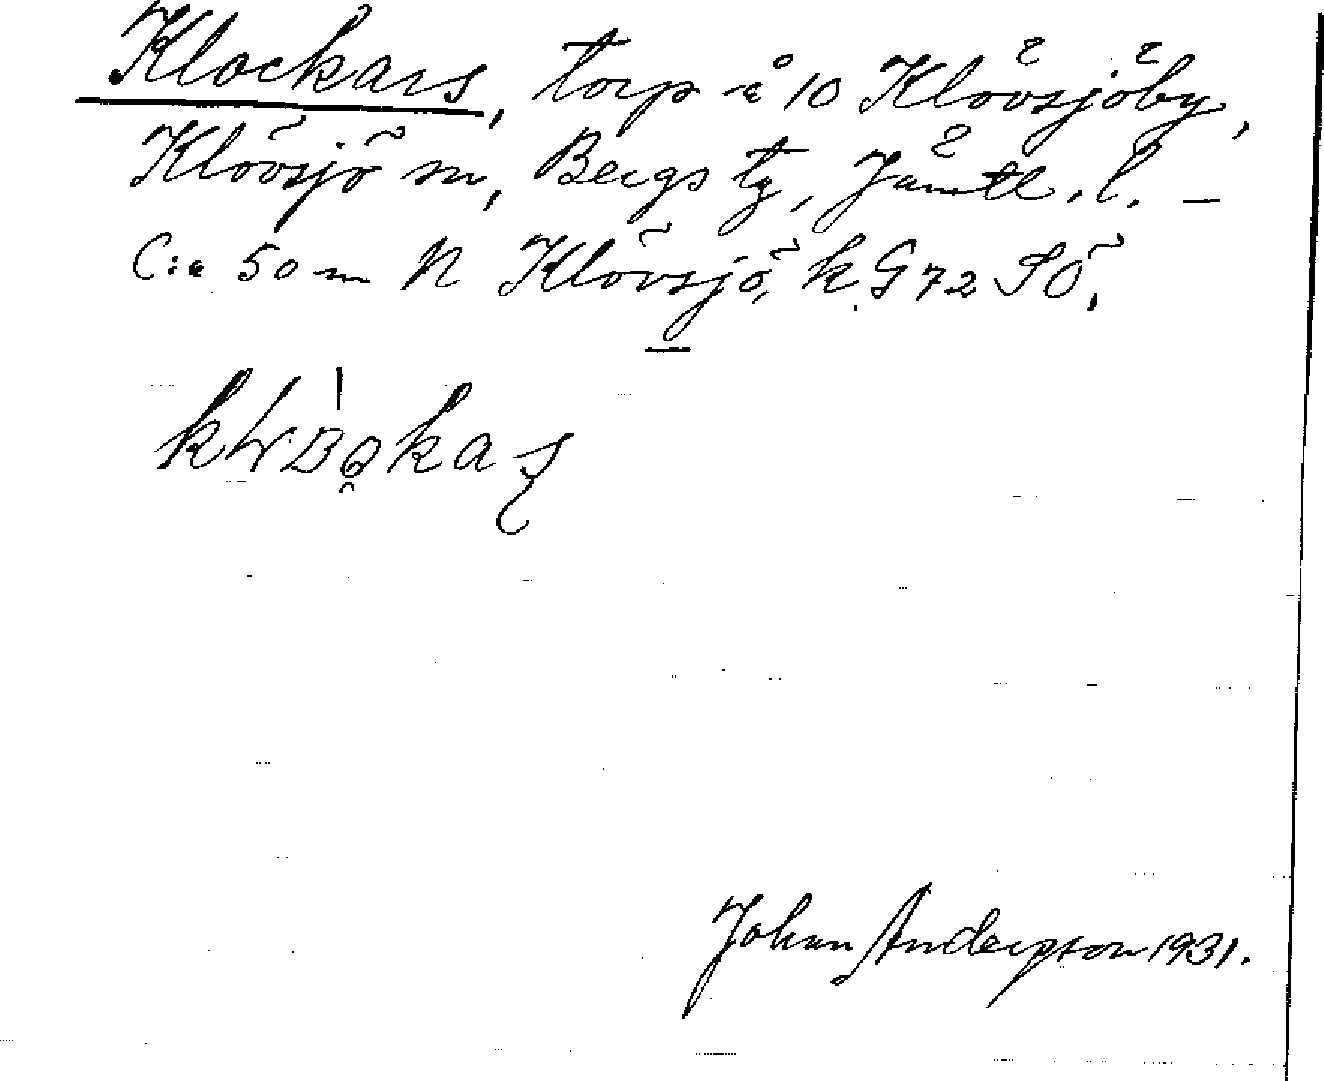 Klockars, torp å 10 Klövsjöby,
Klövsjö sn, Bergs tg, Jämtl. l. –
C:a 50 m N Klövsjö, k. G 72 SÖ.
Johan Anderson 1931.